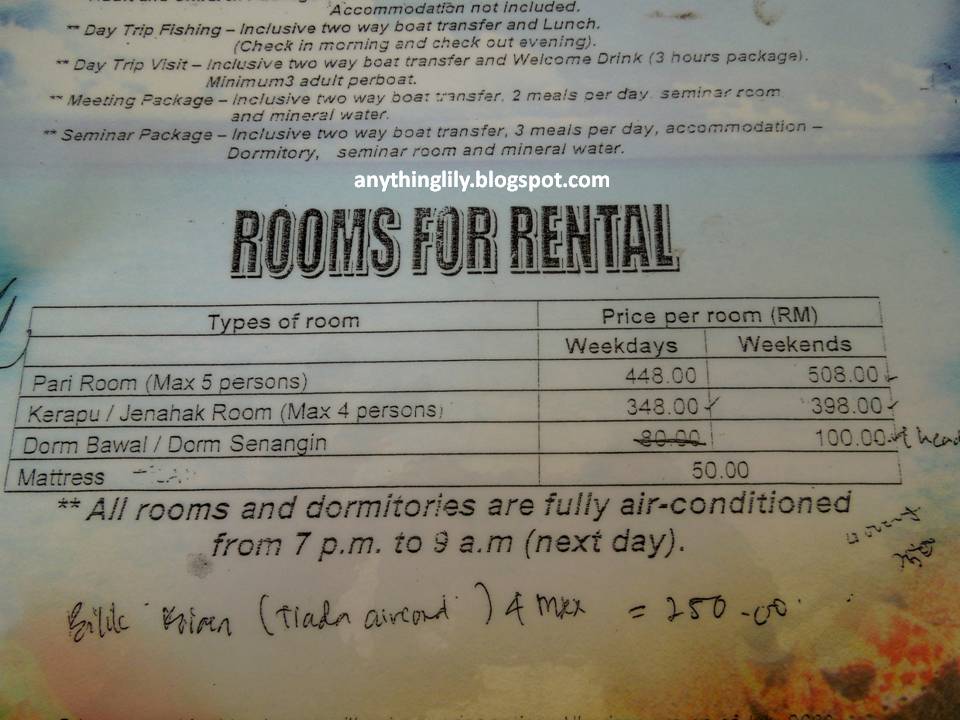 Accommodation not included.
** Day Trip Fishing – Inclusive two way boat transfer and Lunch.
(Check in morning and check out evening).
** Day Trip Visit – Inclusive two way boat transfer and Welcome Drink (3 hours package).
Minimum3 adult perboat.
** Meeting Package – Inclusive two way boat transfer, 2 meals per day, seminar room
and mineral water.
** Seminar Package – Inclusive two way boat transfer, 3 meals per day, accommodation –
Dormitory, seminar room and mineral water.
anythinglily.blogspot.com
ROOMS FOR RENTAL
Types of room Price per room (RM)
Weekdays Weekends
Pari Room (Max 5 persons) 448.00 508.00
Kerapu / Jenahak Room (Max 4 persons) 348.00 398.00
Dorm Bawal / Dorm Senangin 80.00 100.00 head
Mattress 50.00
** All rooms and dormitories are fully air-conditioned
from 7 p.m. to 9 a.m (next day).
Bilik (Tiada aircond) 4 max = 250-00